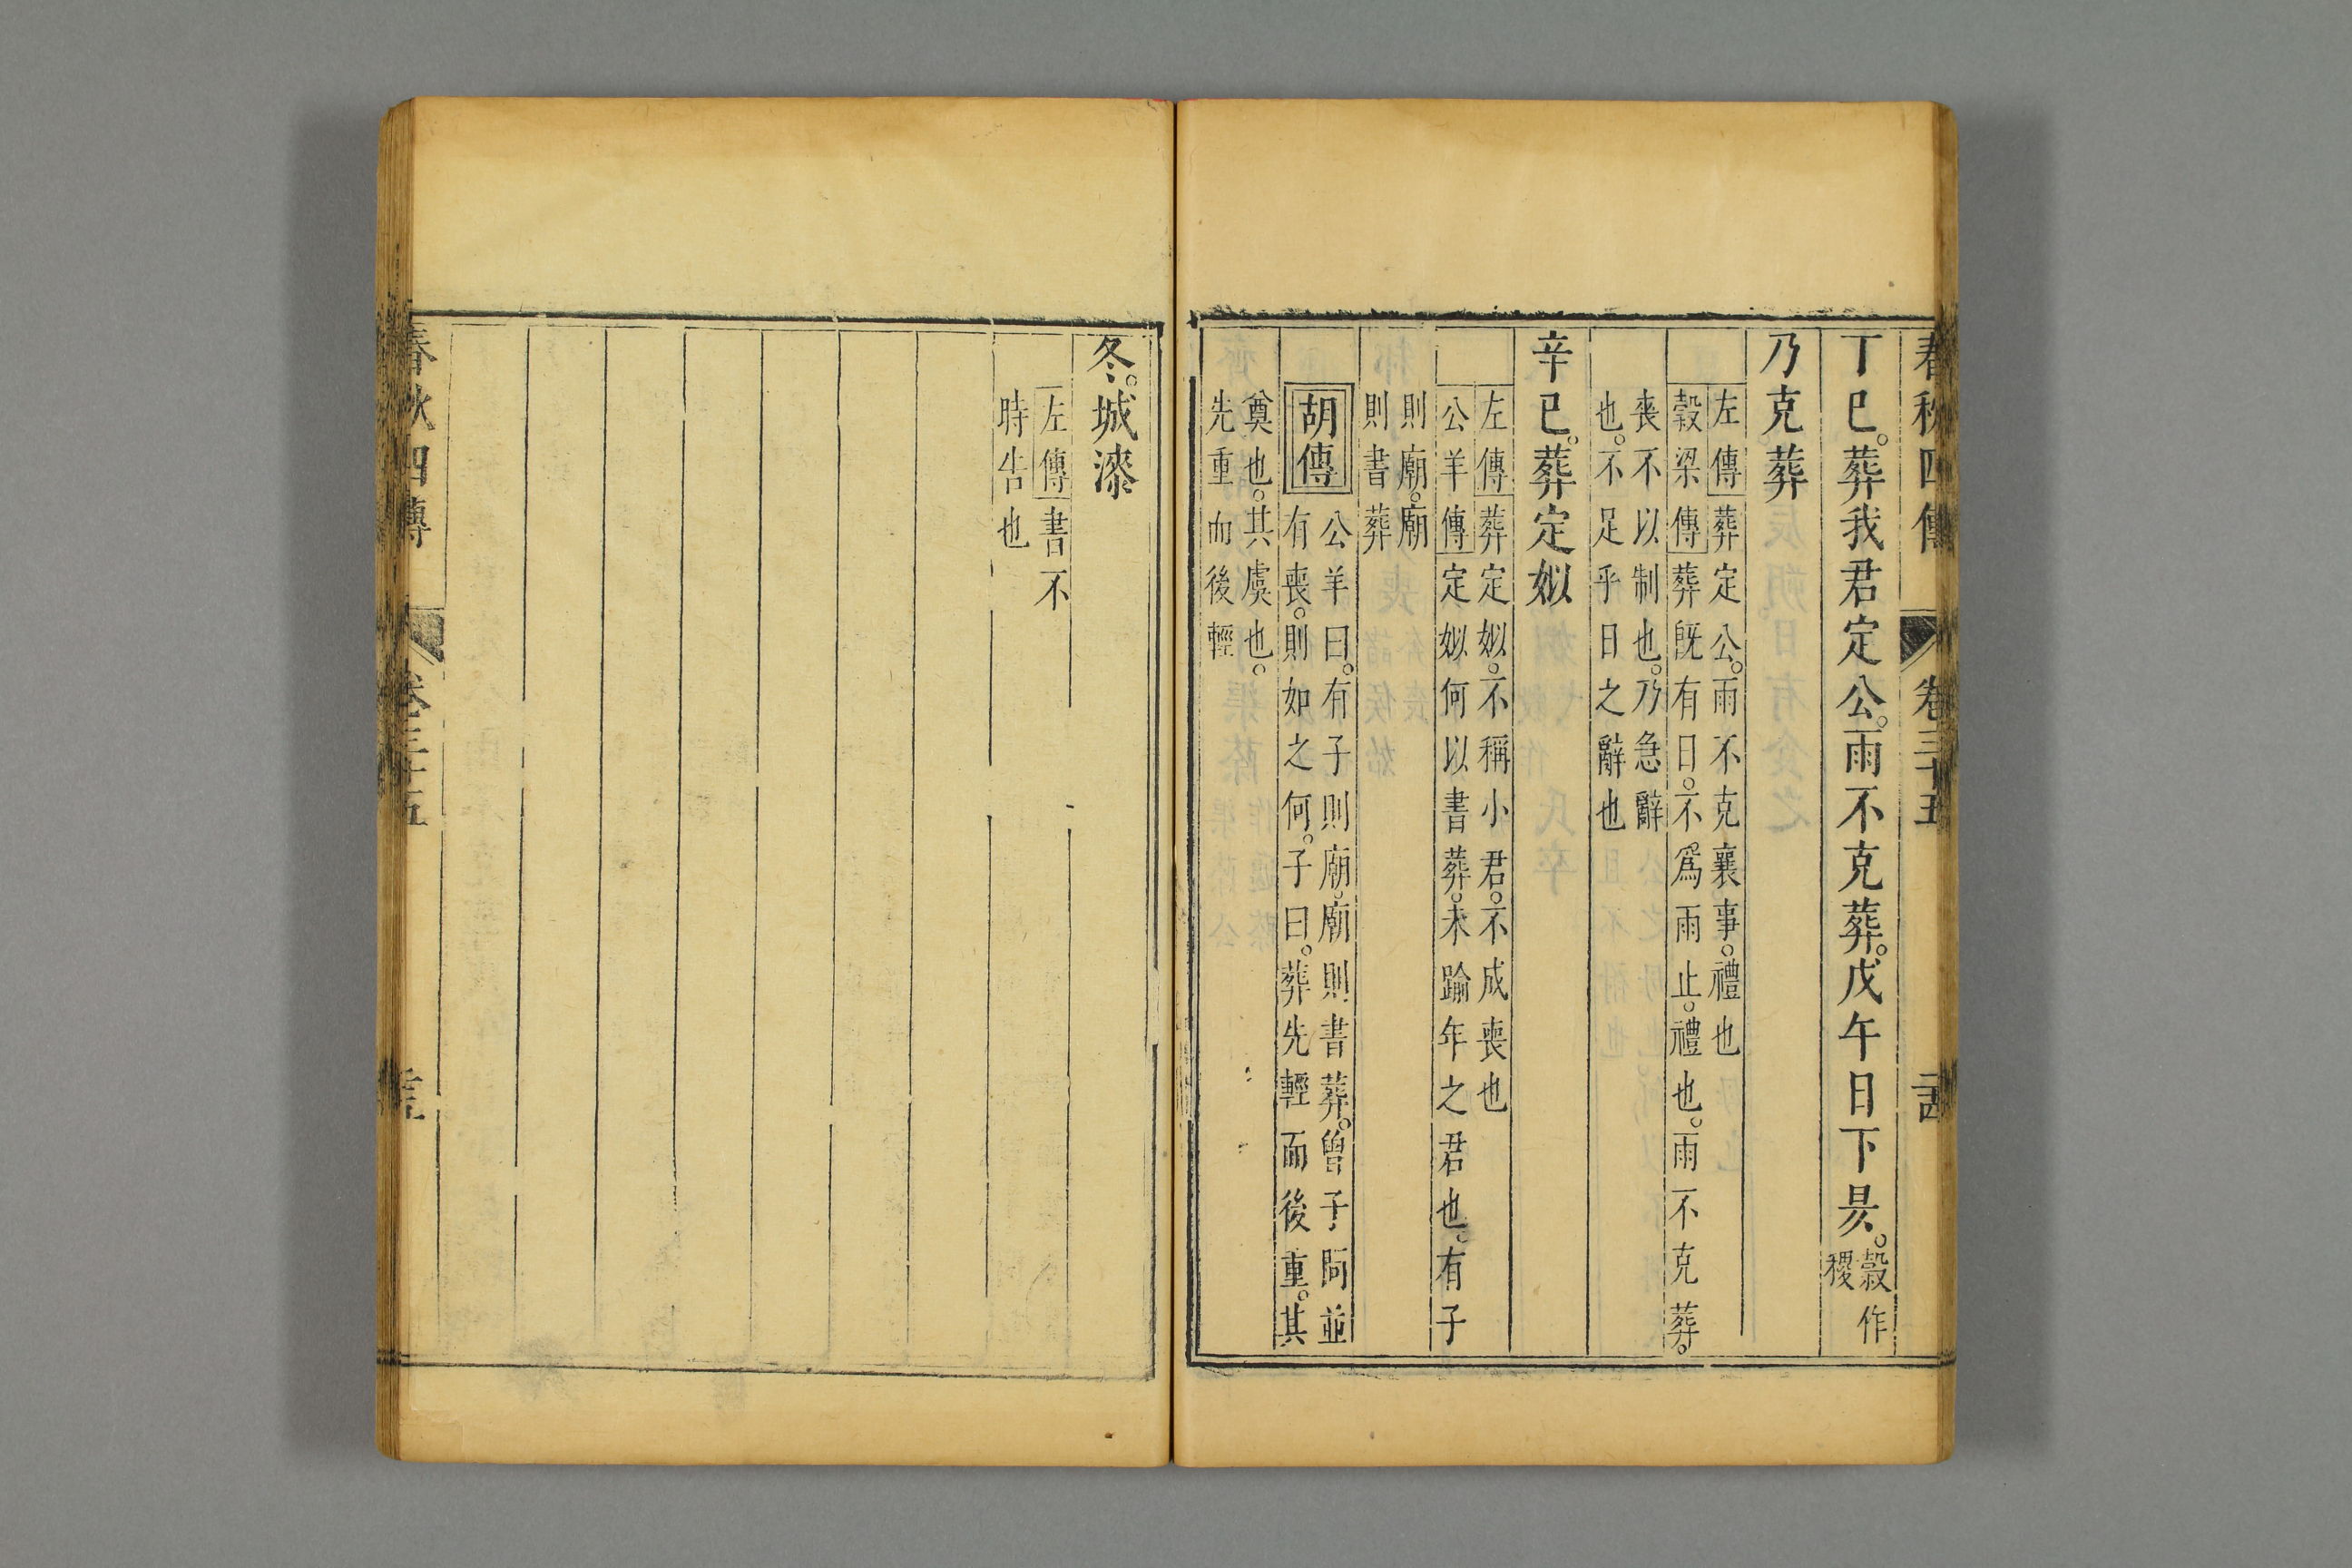 春秋四傳 卷三十五
丁巳。葬我君定公。雨不克葬。戊午日下昃。穀作
稷
乃克葬
左傳葬定公。雨不克襄事。禮也
穀梁傳葬既有日。不爲雨止。禮也。雨不克葬。
喪不以制也。乃急辭
也。不足乎日之辭也
辛巳。葬定姒
左傳葬定姒。不稱小君。不成喪也
公羊傳定姒何以書葬。未踰年之君也。有子
則廟。廟
則書葬
胡傳
公羊曰。有子則廟。廟則書葬。曾子問並
有喪。則如之何。子曰。葬先輕而後重。其
奠也。其虞也。
先重而後輕
冬。城漆
左傳書不
時告也
春秋四傳 卷三十五